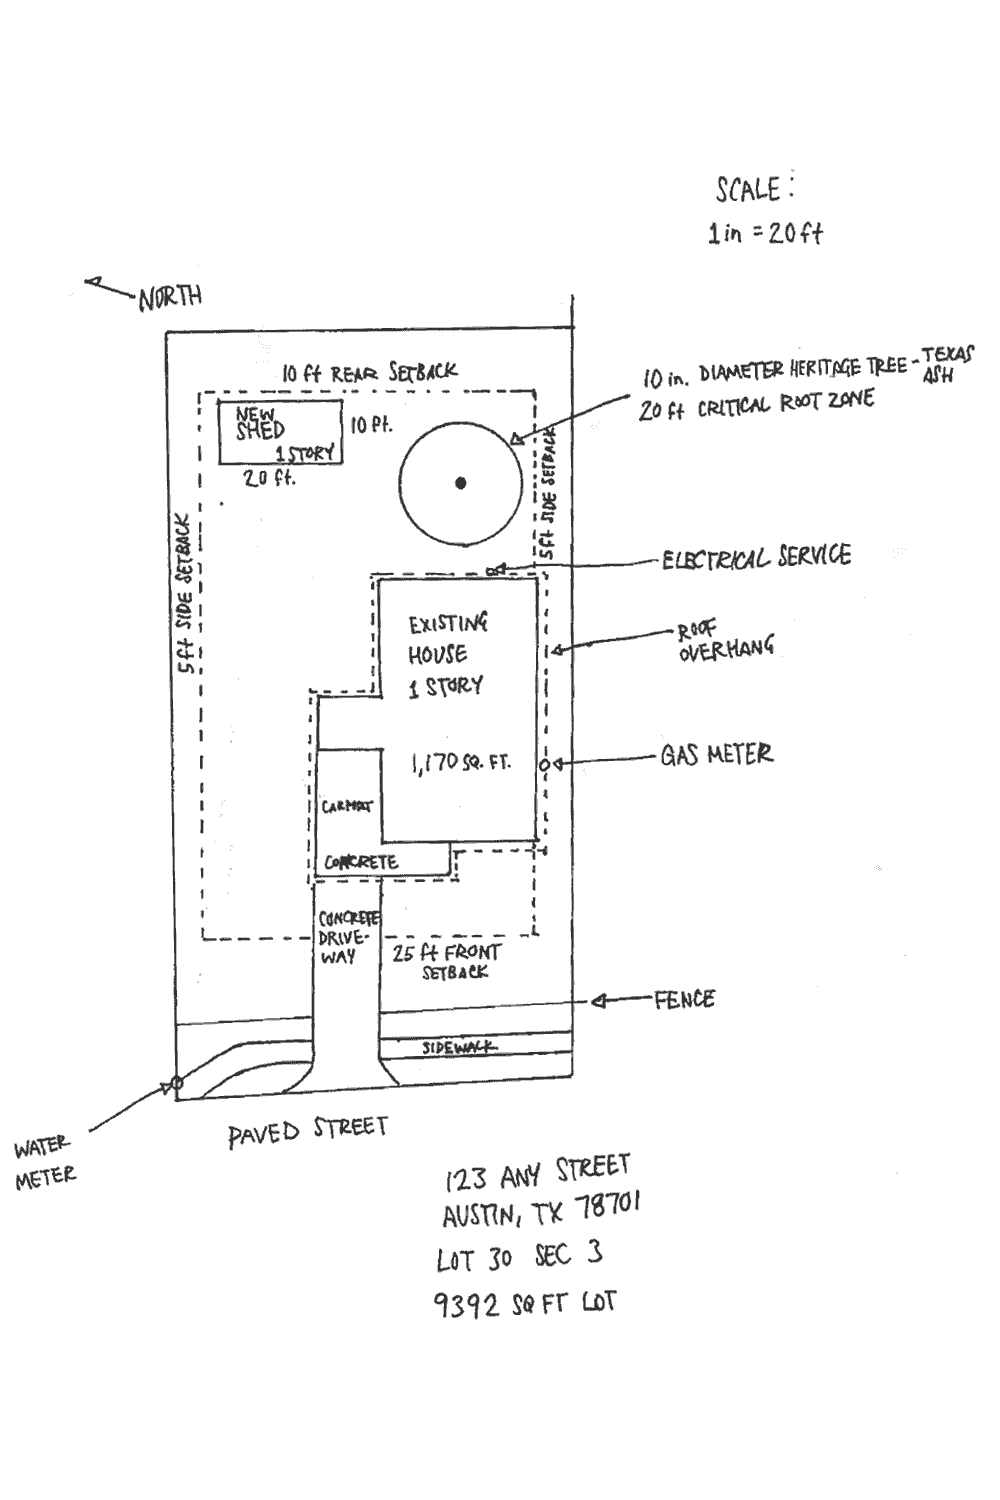 SCALE:
1 in = 20 ft
NORTH
10 ft REAR SETBACK
10 in. DIAMETER HERITAGE TREE - TEXAS
ASH
20 ft CRITICAL ROOT ZONE
NEW
SHED
1 STORY
10 Ft.
20 ft.
5 ft SIDE SETBACK
5 ft SIDE SETBACK
ELECTRICAL SERVICE
EXISTING
HOUSE
1 STORY
1,170 SQ. FT.
ROOF
OVERHANG
GAS METER
CARPORT
CONCRETE
CONCRETE
DRIVE-
WAY
25 ft FRONT
SETBACK
FENCE
SIDEWALK
WATER
METER
PAVED STREET
123 ANY STREET
AUSTIN, TX 78701
LOT 30 SEC 3
9392 SQ FT LOT